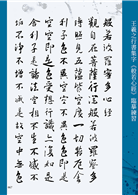 王羲之行書集字《般若心經》臨摹練習
般若波羅蜜多心經
觀自在菩薩行深般若波羅蜜多
時照見五蘊皆空度一切苦厄舍
利子色不異空空不異色色即是
空空即是色受想行識亦復如是
舍利子是諸法空相不生不滅不